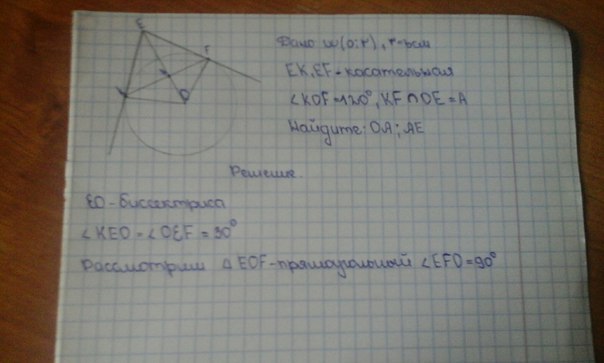 E
F
K
O
Дано w(o;r), r=8см
EK, EF-касательная
∠KOF=120°, KF∩OE=A
Найдите: OA; AE
Решение.
EO-биссектриса
∠KEO=∠OEF=30°
Рассмотрим ∆ EOF-прямоугольный ∠EFO=90°